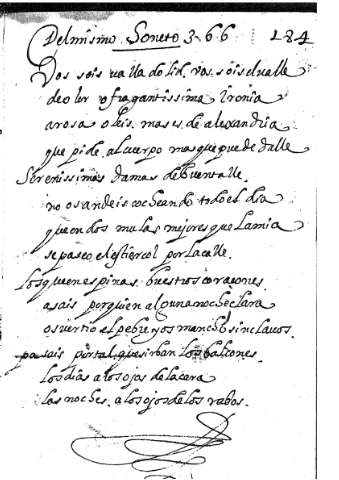 Delmismo Soneto 366 184
Vos sois valladolid. vos sois elvalle
de oler o fragantissima Ironia
arosa oleis. mas es de alexandria
que pide alcuerpo mas que puede dalle
Serenissimas damas de buen talle
no os andeis cocheando todo el dia
que en dos mulas mejores que lamia
se pasea elestiercol por lacalle.
los que en espinas. buestros coraçones
asais porquien alguna noche clara
os vertio el pebre y os mancho sin clauos.
pasais por tal que sirban los balcones
los dias a los ojos de la cara
las noches. a los ojos de los rabos.